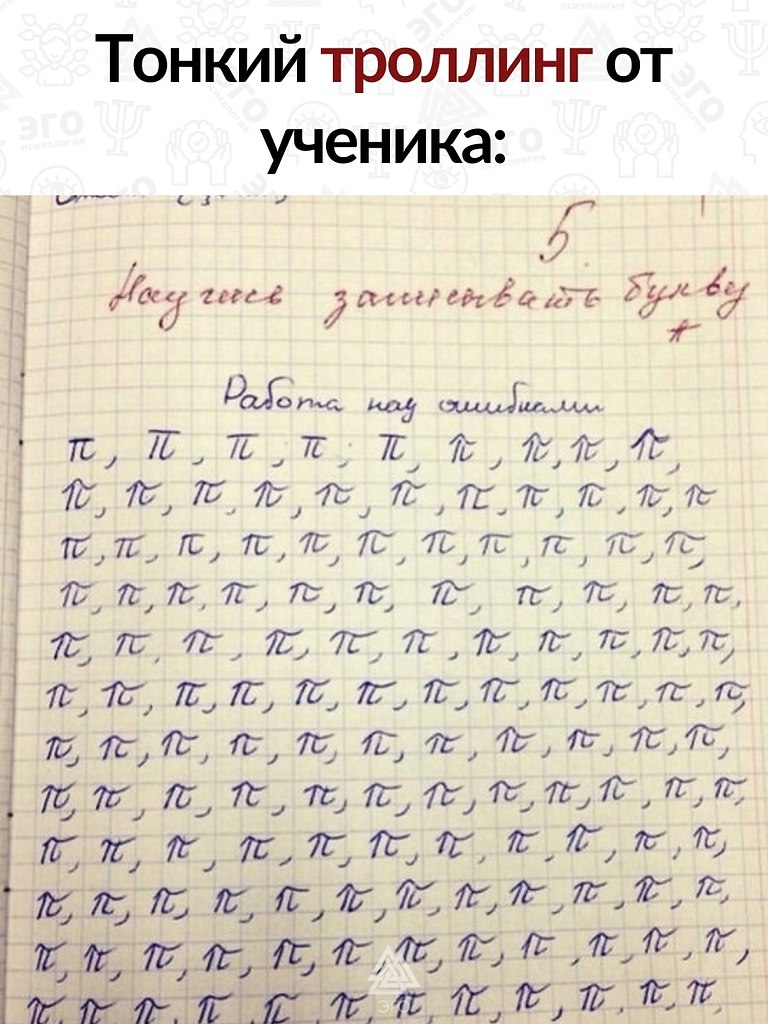 Тонкий троллинг от
ученика:
5
Научись записывать букву
π
Работа над ошибками
π, π, π, π, π, π, π, π, π,
π, π, π, π, π, π, π, π, π, π, π
π, π, π, π, π, π, π, π, π, π, π,
π, π, π, π, π, π, π, π, π, π, π,
π, π, π, π, π, π, π, π, π, π, π,
π, π, π, π, π, π, π, π, π, π, π, π,
π, π, π, π, π, π, π, π, π, π, π,
π, π, π, π, π, π, π, π, π, π, π, π,
π, π, π, π, π, π, π, π, π, π, π,
π, π, π, π, π, π, π, π, π, π, π, π,
π, π, π, π, π, π, π, π, π, π, π, π,
π, π, π, π, π, π, π, π, π, π, π, π,
ЭГО